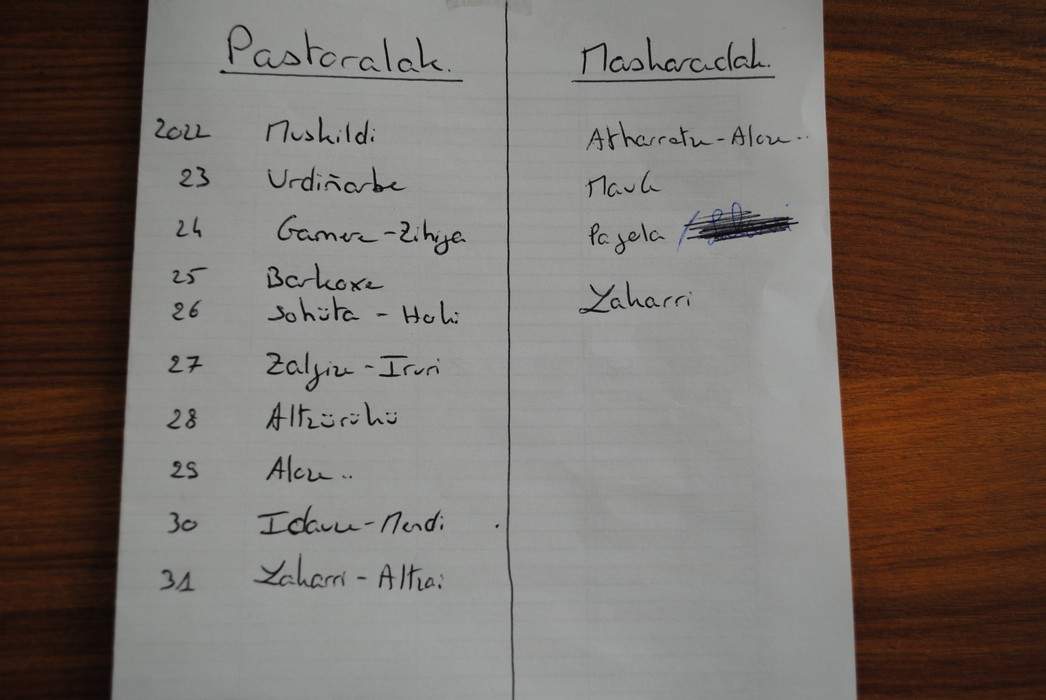 Pastoralak.
2022 Muskildi
23 Urdiñarbe
24 Gamere-Zihiga
25 Barkoxe
26 Sohüta - Hoki
27 Zalgize - Iruri
28 Altzürükü
29 Aloze ..
30 Idauze-Mendi
31 Laharri - Altzai
Maskaradak.
Atharratze-Aloze..
Maule
Pagola
Laharri